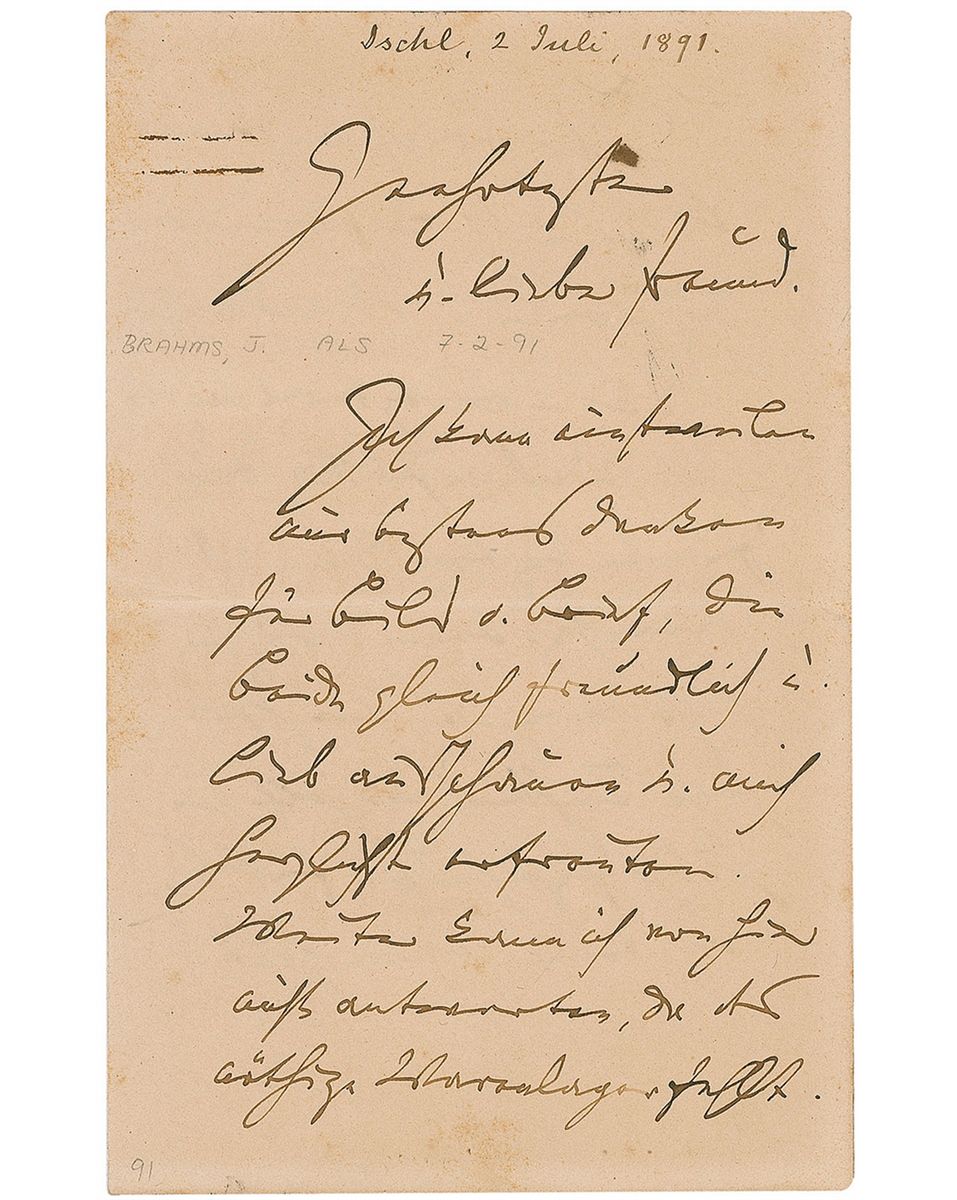 Ischl, 2 Juli, 1891.
Geehrtester
u. lieber Freund.
BRAHMS, J. ALS 7-2-91
Ich kann einstweilen
nur bestens danken
für Bild u. Brief, die
beide gleich freundlich u.
lieb ausschauen u. mich
herzlichst erfreuten.
Weiter kann ich von hier
nicht antworten, da das
nöthige Warenlager fehlt.
91